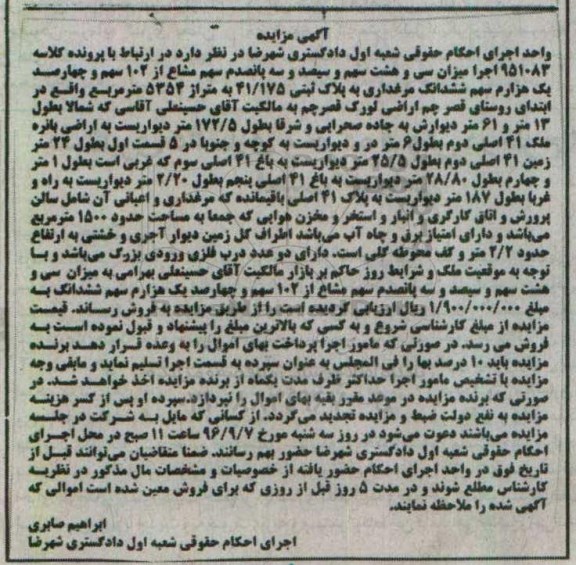 آگهی مزایده
واحد اجرای احکام حقوقی شعبه اول دادگستری شهرضا در نظر دارد در ارتباط با پرونده کلاسه
۹۵۱۰۸۳ اجرا میزان سی و هشت سهم و سیصد و سه پانصدم سهم مشاع از ۱۰۲ سهم و چهارصد
یک هزارم سهم ششدانگ مرغداری به پلاک ثبتی ۴۱/۱۷۵ به متراژ ۵۳۵۴ مترمربع واقع در
ابتدای روستای قصر چم اراضی لورک قصرچم به مالکیت آقای حسینعلی آقاسی که شمالا بطول
۱۳ متر و ۶۱ متر دیوارش به جاده صحرایی و شرقا بطول ۱۷۲/۵ متر دیواریست به اراضی بائره
ملک ۴۱ اصلی دوم بطول ۶ متر در و دیواریست به کوچه و جنوبا در ۵ قسمت اول بطول ۲۴ متر
زمین ۴۱ اصلی دوم بطول ۲۵/۵ متر دیواریست به باغ ۴۱ اصلی سوم که غربی است بطول ۱ متر
و چهارم بطول ۲۸/۸۰ متر دیواریست به باغ ۴۱ اصلی پنجم بطول ۲/۲۰ متر دیواریست به راه و
غربا بطول ۱۸۷ متر دیواریست به پلاک ۴۱ اصلی باقیمانده که مرغداری و اعیانی آن شامل سالن
پرورش و اتاق کارگری و انبار و استخر و مخزن هوایی که جمعا به مساحت حدود ۱۵۰۰ مترمربع
می‌باشد و دارای امتیاز برق و چاه آب می‌باشد اطراف کل زمین دیوار آجری و خشتی به ارتفاع
حدود ۲/۲ متر و کف محوطه کلی است. دارای دو عدد درب فلزی ورودی بزرگ می‌باشد و با
توجه به موقعیت ملک و شرایط روز حاکم بر بازار مالکیت آقای حسینعلی بهرامی به میزان سی و
هشت سهم و سیصد و سه پانصدم سهم مشاع از ۱۰۲ سهم و چهارصد یک هزارم سهم ششدانگ به
مبلغ ۱/۹۰۰/۰۰۰/۰۰۰ ریال ارزیابی گردیده است را از طریق مزایده به فروش رساند. قیمت
مزایده از مبلغ کارشناسی شروع و به کسی که بالاترین مبلغ را پیشنهاد و قبول نموده است به
فروش می رسد. در صورتی که مامور اجرا پرداخت بهای اموال را به وعده قرار دهد برنده
مزایده باید ۱۰ درصد بها را فی المجلس به عنوان سپرده به قسمت اجرا تسلیم نماید و مابقی وجه
مزایده با تشخیص مامور اجرا حداکثر ظرف مدت یکماه از برنده مزایده اخذ خواهد شد. در
صورتی که برنده مزایده در موعد مقرر بقیه بهای اموال را نپردازد.سپرده او پس از کسر هزینه
مزایده به نفع دولت ضبط و مزایده تجدید می‌گردد. از کسانی که مایل به شرکت در جلسه
مزایده می‌باشند دعوت می‌شود در روز سه شنبه مورخ ۹۶/۹/۷ ساعت ۱۱ صبح در محل اجرای
احکام حقوقی شعبه اول دادگستری شهرضا حضور بهم رسانند. ضمنا متقاضیان می‌توانند قبل از
تاریخ فوق در واحد اجرای احکام حضور یافته از خصوصیات و مشخصات مال مذکور در نظریه
کارشناس مطلع شوند و در مدت ۵ روز قبل از روزی که برای فروش معین شده است اموالی که
آگهی شده را ملاحظه نمایند.
ابراهیم صابری
اجرای احکام حقوقی شعبه اول دادگستری شهرضا